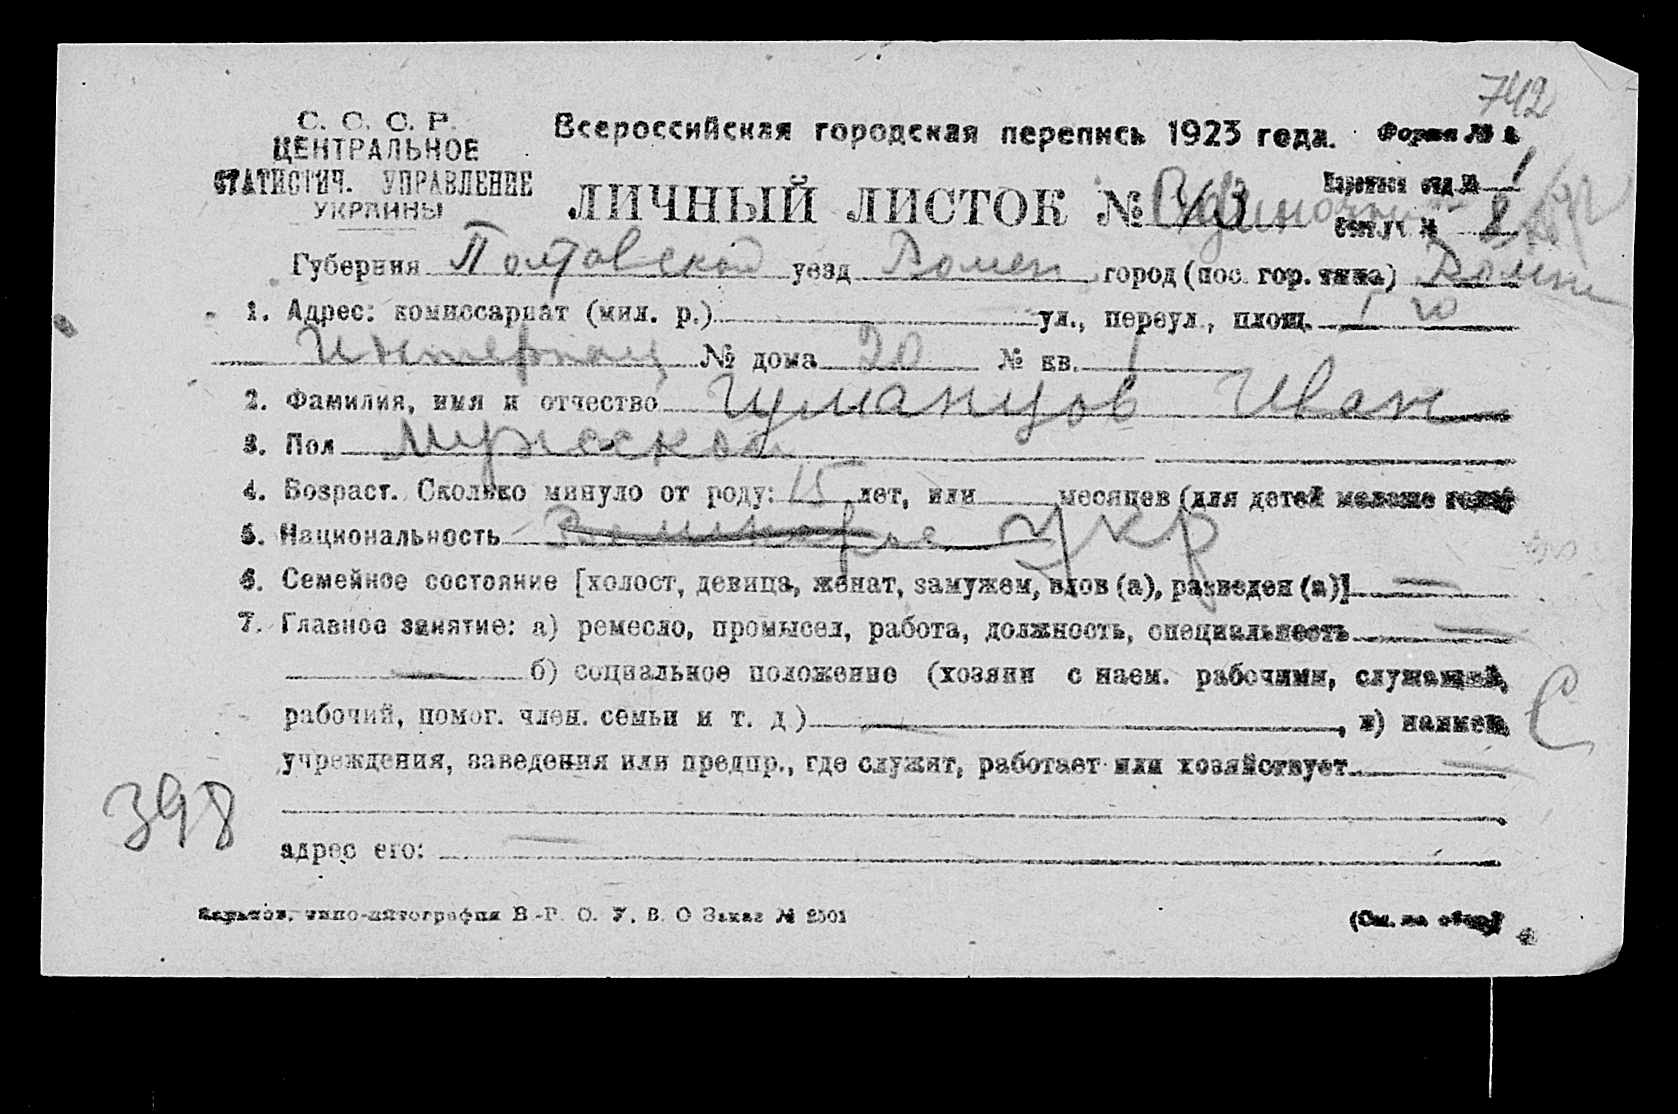 742
С. С. С. Р.
ЦЕНТРАЛЬНОЕ
СТАТИСТИЧ. УПРАВЛЕНИЕ
УКРАИНЫ
Всероссийская городская перепись 1923 года. Форма № 
ЛИЧНЫЙ ЛИСТОК №
отд. № 1
№ 8
Губерния Полтавской уезд Ромен город (пос. гор. типа) Ромны
1. Адрес: комиссариат (мил. р.) ул., переул., площ. 1 го
Интернац № дома 20 № кв. 1
2. Фамилия, имя и отчество Чуманцов Иван
3. Пол мужской
4. Возраст. Сколько минуло от роду: 15 лет, или месяцев (для детей моложе года)
5. Национальность Укр
6. Семейное состояние [холост, девица, женат, замужем, вдов (а), разведен (а)] —
7. Главное занятие: а) ремесло, промысел, работа, должность, специальность —
— б) социальное положение (хозяин с наем. рабочими, служащий,
рабочий, помог. член. семьи и т. д.) — , в) наимен.
С
учреждения, заведения или предпр., где служит, работает или хозяйствует —
398
адрес его: —
Харьков, типо-литография В.-Р. О. У. В. О Заказ № 2501
(См. на обор.)